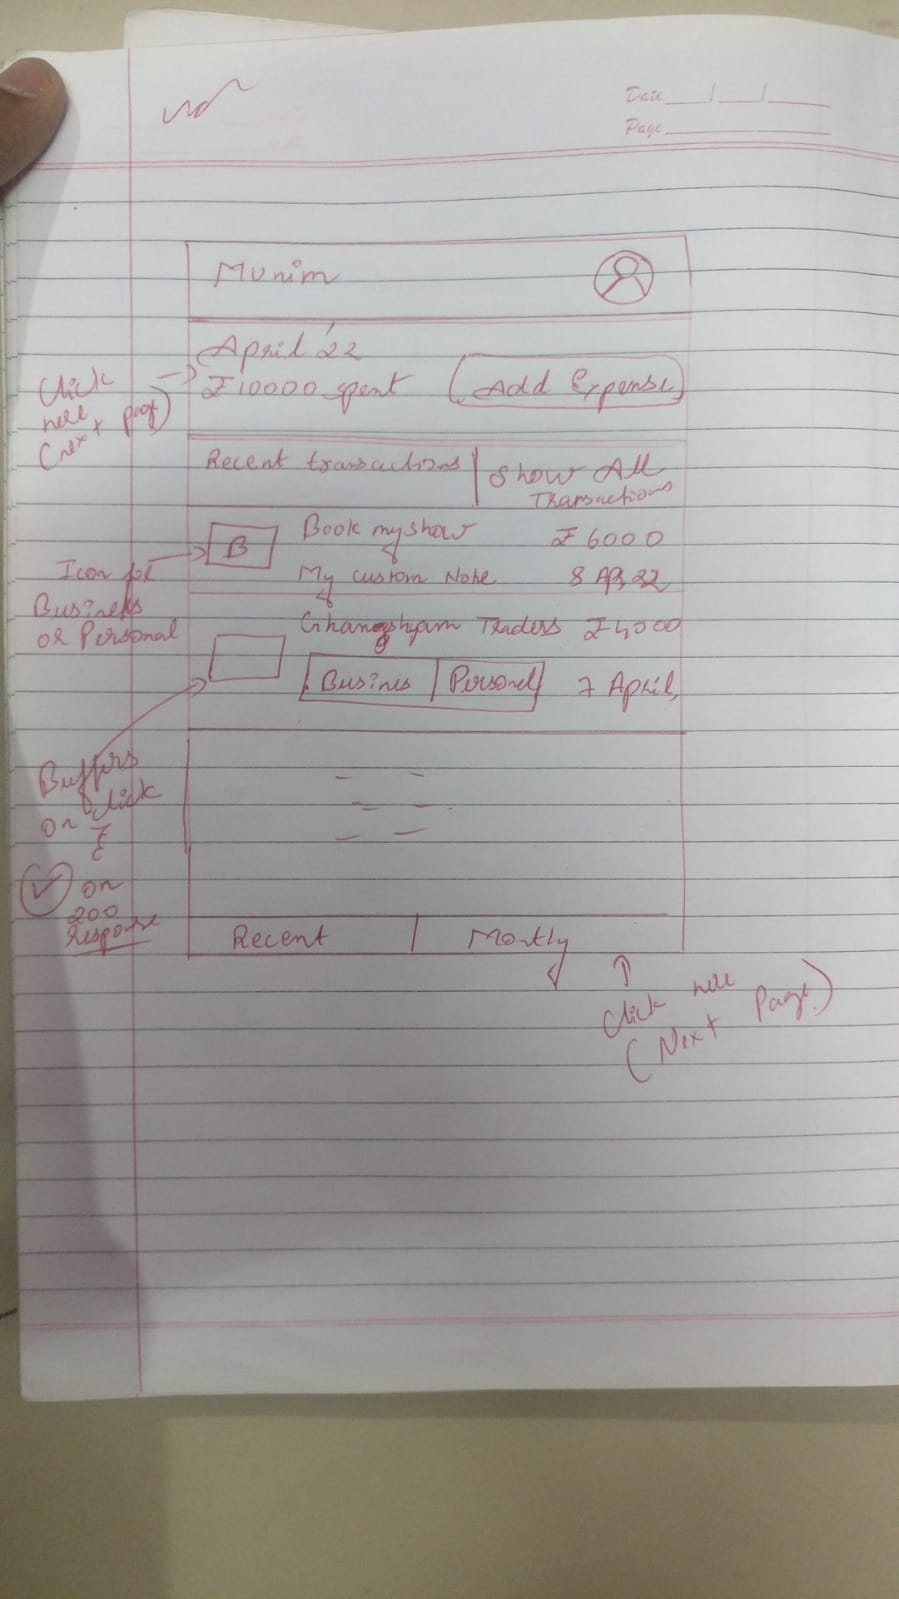 Date
Page
Munim
April '22
₹ 10000 spent
Add Expense
Click
here
(next page)
Recent transactions
Show All
Transactions
B
Book myshow
₹ 6000
My custom Note
8 Apr 22
Icon for
Business
or Personal
Ghanshyam Traders ₹4000
Busines
Personal
7 April
Buffers
on click
&
on
200
Response
Recent
Montly
Click here
(Next Page)